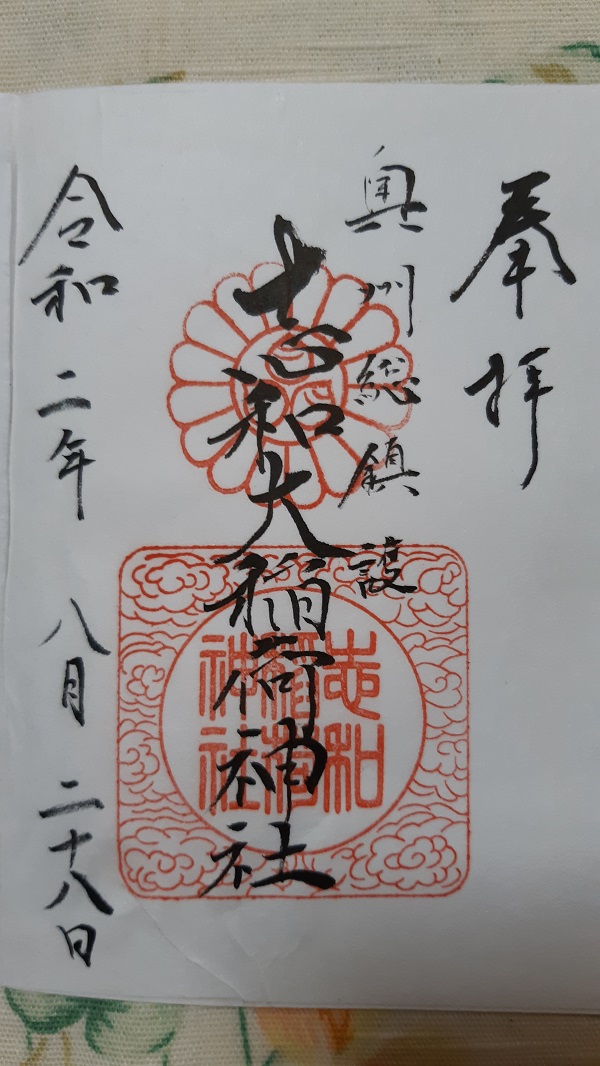 奉拝
奥州総鎮護
志和大稲荷神社
志和
稲荷
神社
令和二年 八月 二十八日